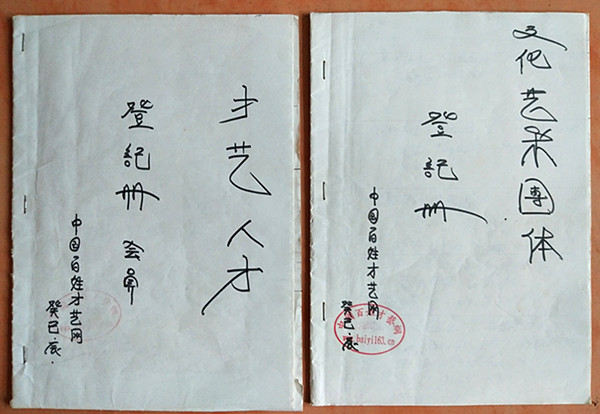 才艺人才
登記册 会員
中国百姓才艺网
癸巳.底.
文化艺术團体
登記册
中国百姓才艺网
癸巳.底.
www.baiyi163.cn